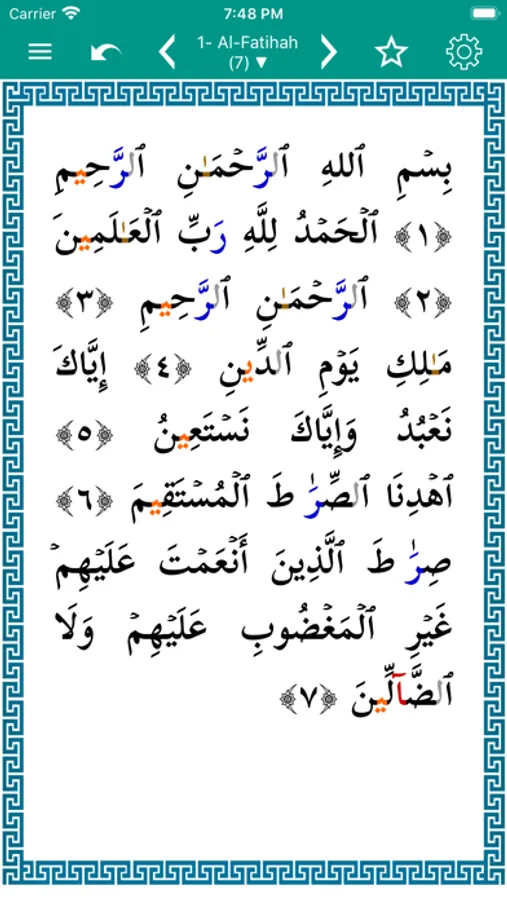 Carrier 7:48 PM
1- Al-Fatihah
(7) ▼
بِسۡمِ ٱللهِ ٱلرَّحۡمَـٰنِ ٱلرَّحِيمِ
﴿١﴾ ٱلۡحَمۡدُ لِلَّهِ رَبِّ ٱلۡعَـٰلَمِينَ
﴿٢﴾ ٱلرَّحۡمَـٰنِ ٱلرَّحِيمِ ﴿٣﴾
مَـٰلِكِ يَوۡمِ ٱلدِّينِ ﴿٤﴾ إِيَّاكَ
نَعۡبُدُ وَإِيَّاكَ نَسۡتَعِينُ ﴿٥﴾
ٱهۡدِنَا ٱلصِّرَٰطَ ٱلۡمُسۡتَقِيمَ ﴿٦﴾
صِرَٰطَ ٱلَّذِينَ أَنۡعَمۡتَ عَلَيۡهِمۡ
غَيۡرِ ٱلۡمَغۡضُوبِ عَلَيۡهِمۡ وَلَا
ٱلضَّآلِّينَ ﴿٧﴾